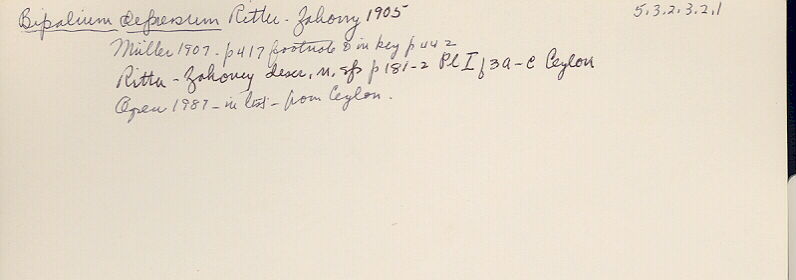 Bipalium depressum Ritter-Zahony 1905 5.3.2.3.2.1
Müller 1907 - p 417 footnote & in key p 442
Ritter-Zahony descr. n. sp p 181-2 Pl I f 3a-c Ceylon
Ogren 1987 - in list - from Ceylon.